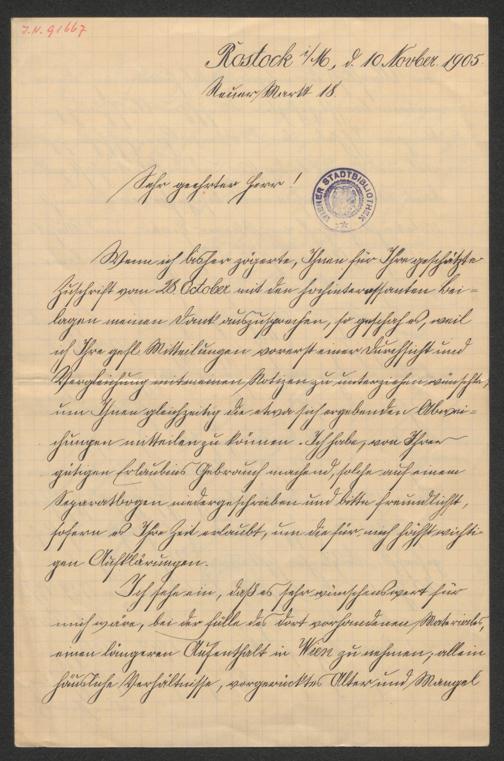 J.N. 91667
Rostock i/M., d. 10 Novber. 1905
Neuer Markt 18
WIENER STADTBIBLIOTHEK
Sehr geehrter Herr!
Wenn ich bisher zögerte, Ihnen für Ihre geschätzte
Zuschrift vom 28. October mit den hochinteressanten Bei-
lagen meinen Dank auszusprechen, so geschah es, weil
ich Ihre gefl. Mitteilungen vorerst einer Durchsicht und
Vergleichung mit meinen Notizen zu unterziehen wünschte,
um Ihnen gleichzeitig die etwa sich ergebenden Abwei-
chungen mitteilen zu können. Ich habe, von Ihrer
gütigen Erlaubnis Gebrauch machend, solche auf einem
Separatbogen niedergeschrieben und bitte freundlichst,
sofern es Ihre Zeit erlaubt, um die für mich höchst wichti-
gen Aufklärungen.
Ich sehe ein, daß es sehr wünschenswert für
mich wäre, bei der Fülle des dort vorhandenen Materiales,
einen längeren Aufenthalt in Wien zu nehmen; allein
häusliche Verhältnisse, vorgerücktes Alter und Mangel